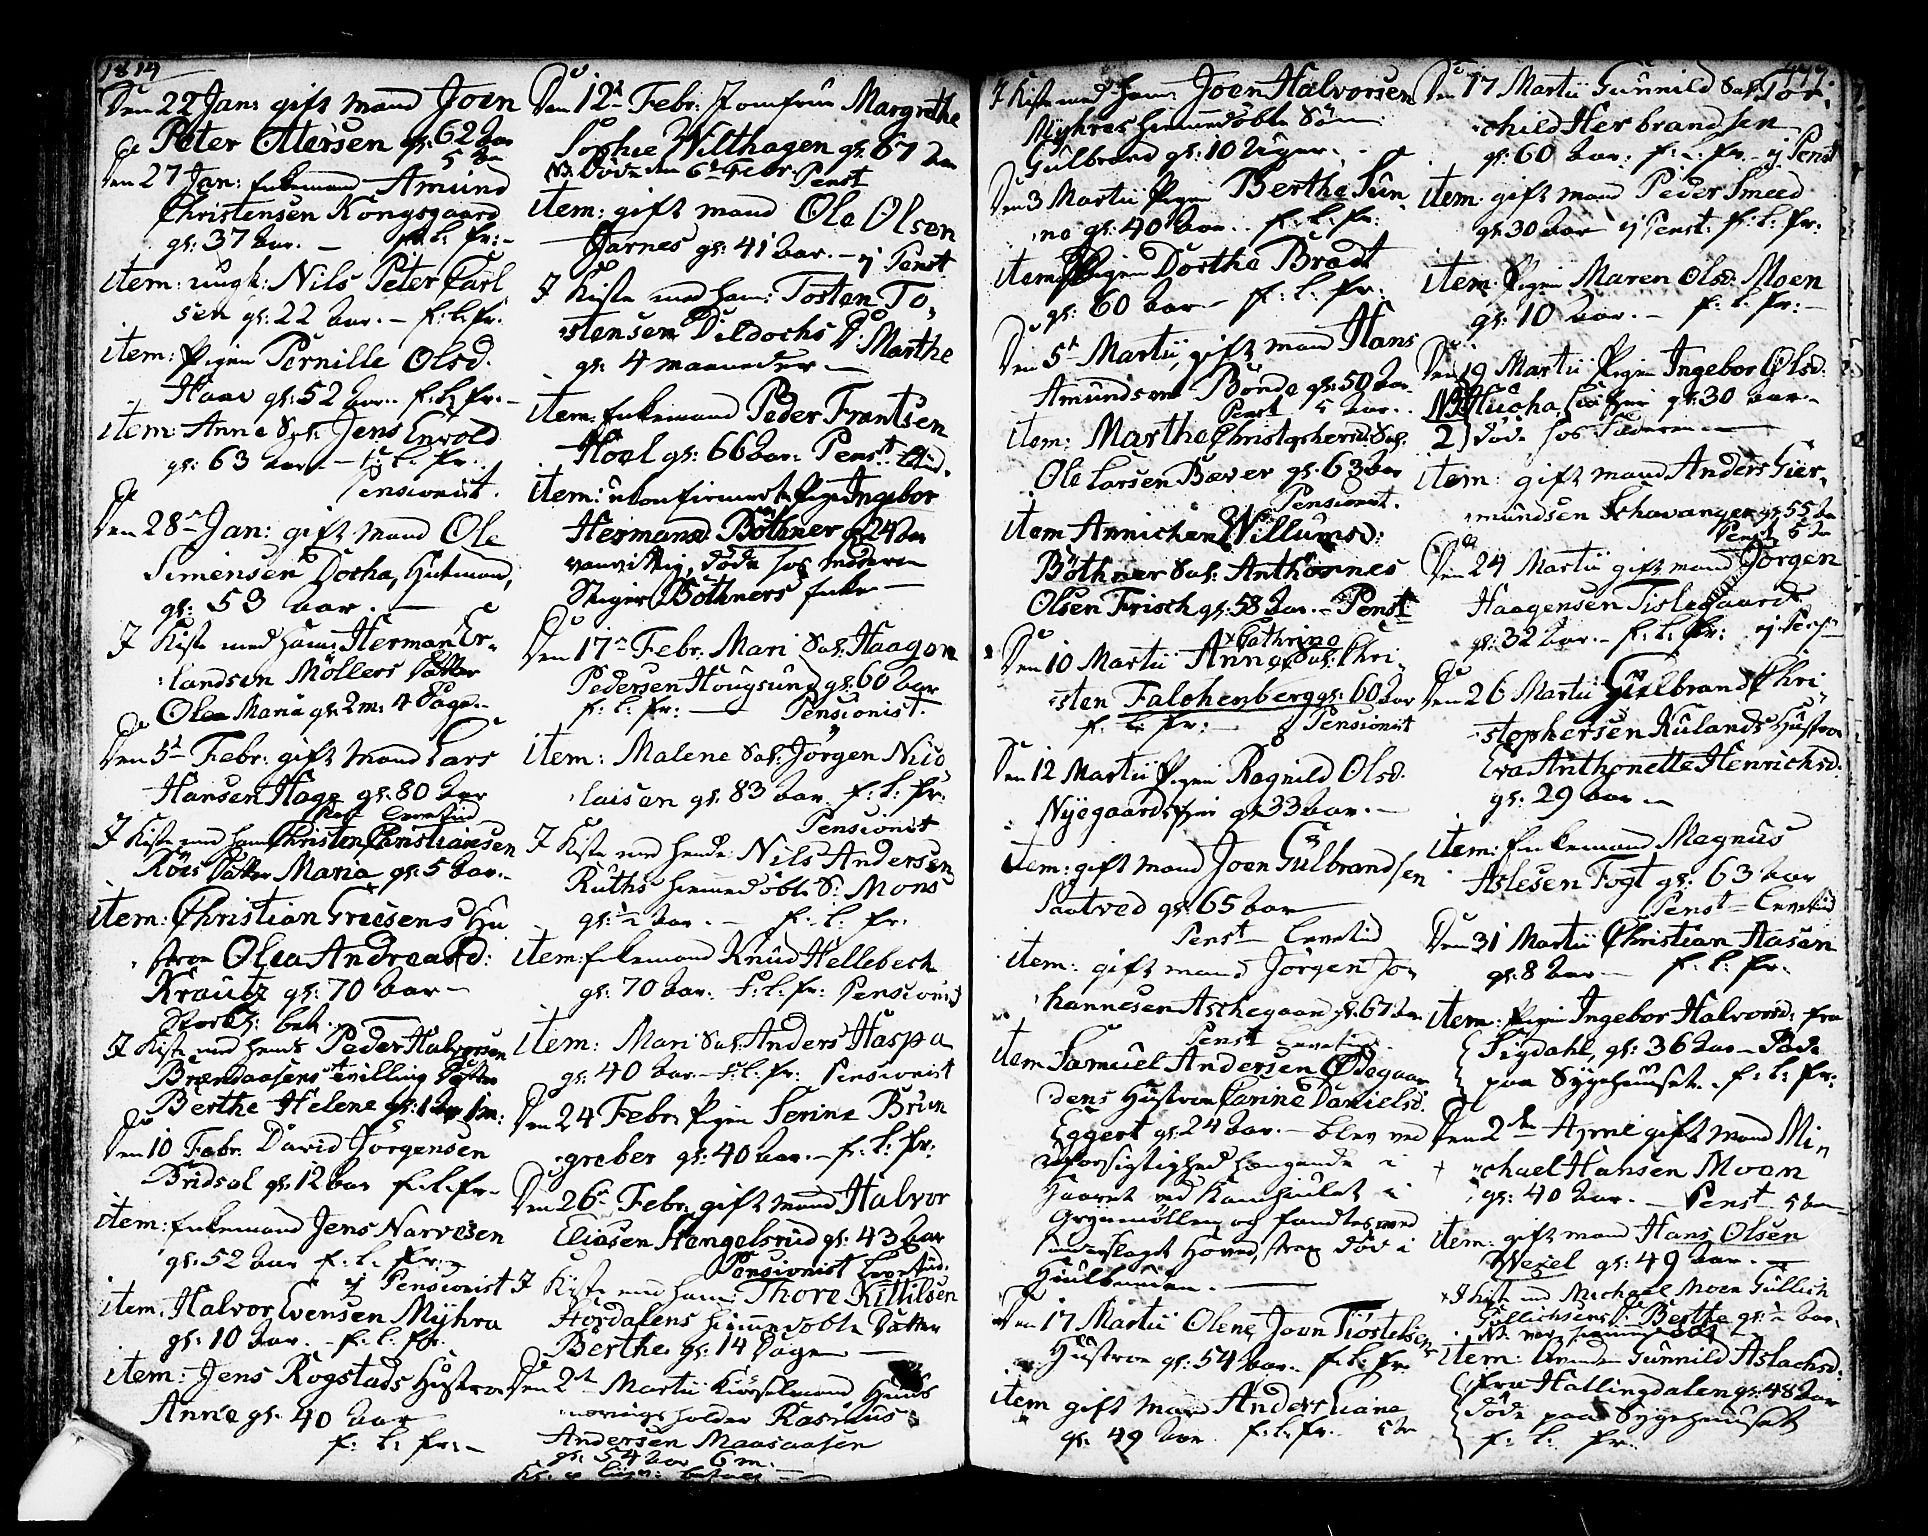 1814
Den 22 Jan: gift mand Joen
Peter Ottersen gl: 62 aar
5 br
Den 27 Jan: Enkemand Amund
Christensen Kongsgaard
gl: 37 aar. — f: l: fr: -
item: ungk: Nils Peter Carl
sen gl: 22 aar. — f: l: fr:
item: Pigen Pernille Olsd.
Haav gl: 52 aar. f: l: fr: -
item: Anne Sal: Jens Envold
gl: 63 aar. — f: l: fr.
Pensionist.
Den 28de Jan: gift mand Ole
Simensen Docka, Hutmand,
gl: 53 aar. —
I Kiste med ham: Herman Er-
landsen Möllers Datter
Olea Maria gl: 2 m: 4 Dage. -
Den 5te Febr: gift mand Lars
Hansen Hage gl: 80 aar
Penst Levetid
I Kiste med ham Christen Christiansen
Röis Datter Maria gl: 5 aar. -
item: Christian Griesens Hu
stroe Olea Andreasd:
Krautz gl: 70 aar —
bet.
I Kiste med hende Peder Halvorsen
Brændaasens tvilling Datter
Berthe Helene gl: 1 aar 1 m:
Den 10 Febr. David Jörgensen
Bridsal gl: 12 aar f: l: fr -
item: Enkemand Jens Narvesen
gl: 52 aar f: l: fr:
ej Pensionist
item: Halvor Evensen Myhra
gl: 10 aar. - f: l: fr.
item: Jens Rogstads Hustroe
Anne gl: 40 aar
f: l: fr: -
Den 12te Febr: Jomfrue Margrethe
Sophie Wilthagen gl: 67 aar
NB. döde den 6te Febr. Penst
item: gift mand Ole Olsen
Tjarnes gl: 41 aar. — ej Penst
I Kiste med ham: Tosten To-
stensen Dildochs D: Marthe
gl: 4 maaneder —
item: Enkemand Peder Frantsen
Hoel gl: 66 aar. Penst.
item: ukonfirmert Pige Ingebor
Hermansd. Böthner gl 24 aar
vanvittig, döde hos moderen
Stiger Böthners Enke —
Den 17de Febr. Mari Sal: Haagen
Pedersen Hougsund gl: 60 aar
f: l: fr: — Pensionist.
item: Malene Sal: Jörgen Nico
laisen gl: 83 aar. f: l: fr:
Pensionist
I Kiste med hende: Nils Andersen
Ruths hiemmedöbte S: Mons
gl: ½ aar. — f: l: fr.
item: Enkemand Knud Hellebech
gl: 70 aar. f: l: fr: Pensionist
item: Mari Sal: Anders Haspa
gl: 40 aar. - f: l: fr: Pensionist
Den 24 Febr: Pigen Serine Brun
graber gl: 40 aar. — f: l: fr:
Den 26de Febr: gift mand Halvor
Eliasen Hengelsrud gl: 43 aar
Pensionist Levetid.
I Kiste med ham: Thore Kittilsen
Hordalens hiemmedöbte Datter
Berthe gl: 14 Dage —
Den 2de Martii
Rasmus
Andersen Maasaasen
gl: 54 aar 6 m:
I Kiste med ham: Joen Halvorsen
Myhres hiemmedöbte Sön
Gulbrand gl: 10 Uger. -
Den 3 Martii Pigen Berthe Sun-
ne gl: 40 aar. f: l: fr:
item Pigen Dorthe Bradt
gl: 60 aar — f: l: fr:
Den 5te Martii, gift mand Hans
Amundsen Bonde gl: 50 aar
Penst 5 aar.
item: Marthe Christophersd: Sal.
Ole Larsen Bæver gl: 63 aar
Pensionist.
item Annichen Willumsd:
Böthner Sal: Anthonnes
Olsen Frisch gl: 58 aar. — Penst
Den 10 Martii Anne Cathrine Sal: Chri-
sten Falchenberg gl: 60 aar
f: l: fr: Pensionist
Den 12 Martii Pigen Ragnild Olsd.
Nyegaards gl 33 aar. —
item: gift mand Joen Gulbrandsen
Saatved gl: 65 aar
Penst Levetid
item: gift mand Jörgen Jo-
hannesen Aschegaard gl: 67 aar
Penst Levetid.
item Samuel Andersen Ødegaar
dens Hustroe Carine Danielsd.
Eggert gl: 24 aar. — blev ved
Uforsigtighed hængende i
Haaret ved Kamhiulet i
Grynmöllen, og fandtes med
Hoved, strax död i
Hiulbuen. —
Den 17 Martii Olene Joen Tiöstelsens
Hustroe gl: 54 aar. f: l: fr.
item gift mand Anders Liane
gl: 49 aar f: l: fr. 5 br
477.
Den 17 Martii Gunnild Sal: Tor-
child Herbrandsen
gl: 60 aar: f: l: fr. - ej Penst
item: gift mand Peder Smeed
gl 30 aar ej Penst: f: l: fr:
item: Pigen Maren Olsd: Moen
gl: 10 aar. — f: l: fr: -
Den 19 Martii Pigen Ingebor Olsd.
gl: 30 aar. -
2) döde hos Faderen —
item: gift mand Anders Gier-
mundsen Schavanger gl: 55 aar
Penst 5 br
Den 24 Martii gift mand Jörgen
Haagensen Tislegaard
gl: 32 aar. — f: l: fr: ej Penst
Den 26 Martii Gulbrand Chri-
stophersen Rulands Hustroe
Eva Anthonette Henrichsd:
gl: 29 aar —
item: Enkemand Magnus
Aslesen Fogt gl: 63 aar
Penst Levetid
Den 31 Martii Christian Aasen
gl: 8 aar — f: l: fr.
item: Pigen Ingebor Halvorsd: fra
Sigdahl, gl: 36 aar — Döde
paa Sygehuuset. f: l: fr:
Den 2den April gift mand Mi-
chael Hansen Moen
gl: 40 aar. — Penst 5 aar
item: gift mand Hans Olsen
Wexel gl: 49 aar. —
I Kiste med Michael Moen Gullich
Gullichsens D: Berthe gl: ½ aar.
NB. var hiemmedöbt —
item: Gunnild Aslachsd:
fra Hallingdalen gl: 48 aar
döde paa Sygehuuset
f: l: fr.